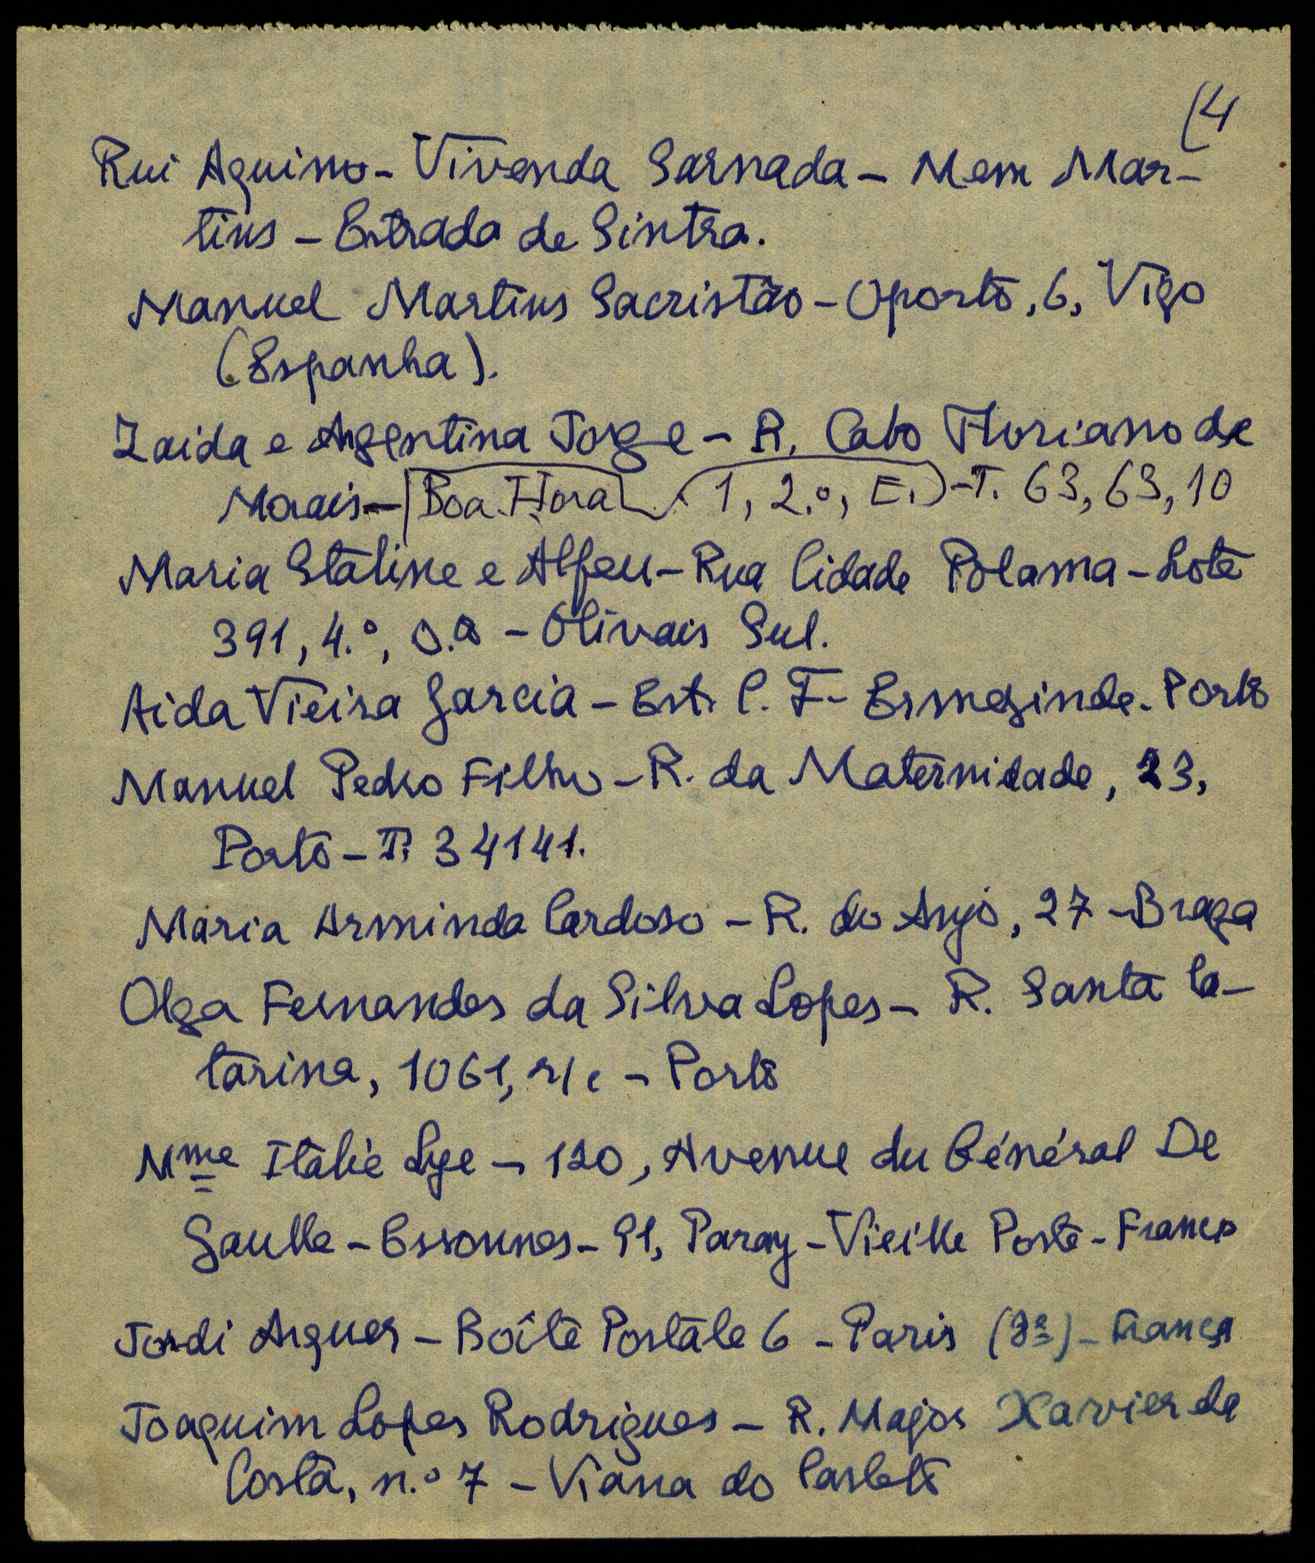 (4
Rui Aquino - Vivenda Sarnada - Mem Mar-
tins - Estrada de Sintra.
Manuel Martins Sacristão - Oporto, 6, Vigo
(Espanha).
Zaida e Argentina Jorge - R. Cabo Floriano de
Morais - Boa Hora 1, 2.º, E.) - T. 63, 63, 10
Maria Staline e Alfeu - Rua Cidade Bolama - Lote
391, 4.º, D.º - Olivais Sul.
Aida Vieira Garcia - Est. C. F. - Ermezinde. Porto
Manuel Pedro Filho - R. da Maternidade, 23,
Porto - T. 34141.
Maria Arminda Cardoso - R. do Anjo, 27 - Braga
Olga Fernandes da Silva Lopes - R. Santa Ca-
tarina, 1061, r/c - Porto
Mme Italie Lye - 120, Avenue du Général De
Gaulle - Essonnes - 91, Paray - Vieille Poste - França
Jordi Arquer - Boîte Postale 6 - Paris - França
Joaquim Lopes Rodrigues - R. Major Xavier da
Costa, n.º 7 - Viana do Castelo